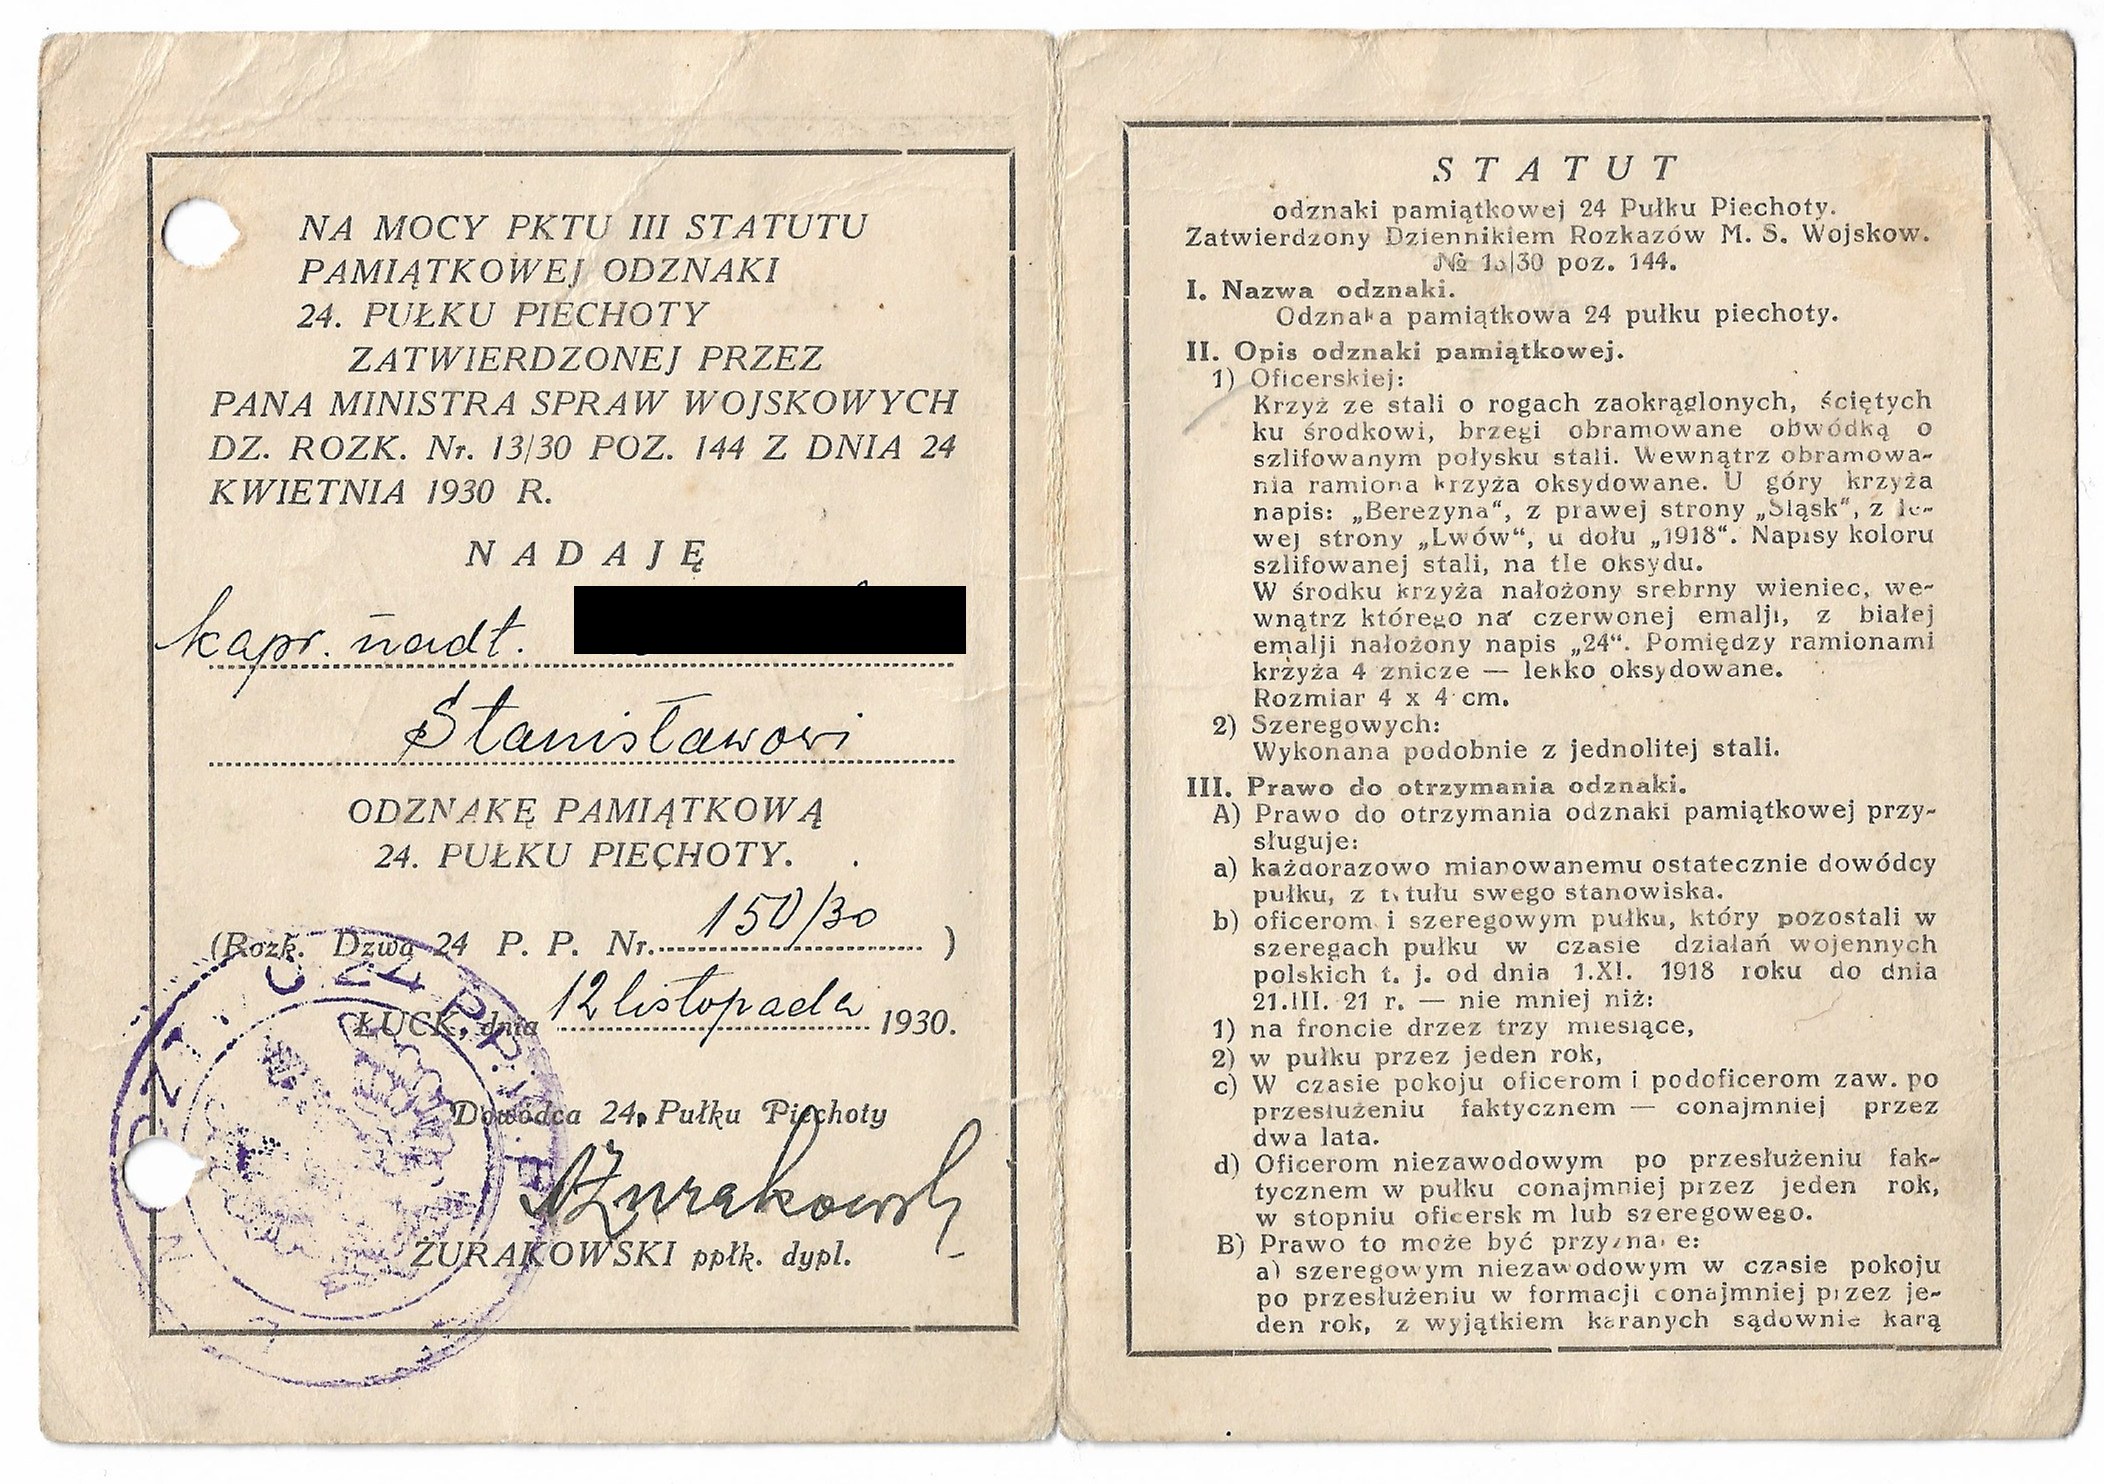 NA MOCY PKTU III STATUTU
PAMIĄTKOWEJ ODZNAKI
24. PUŁKU PIECHOTY
ZATWIERDZONEJ PRZEZ
PANA MINISTRA SPRAW WOJSKOWYCH
DZ. ROZK. Nr. 13/30 POZ. 144 Z DNIA 24
KWIETNIA 1930 R.
NADAJĘ
kapr. nadt.
Stanisławowi
ODZNAKĘ PAMIĄTKOWĄ
24. PUŁKU PIECHOTY.
(Rozk. Dzwa 24 P. P. Nr. 150/30 )
ŁUCK, dnia 12 listopada 1930.
Dowódca 24. Pułku Piechoty
Żurakowski
ŻURAKOWSKI ppłk. dypl.
24 P. P.
STATUT
odznaki pamiątkowej 24 Pułku Piechoty.
Zatwierdzony Dziennikiem Rozkazów M. S. Wojskow.
№ 13|30 poz. 144.
I. Nazwa odznaki.
Odznaka pamiątkowa 24 pułku piechoty.
II. Opis odznaki pamiątkowej.
1) Oficerskiej:
Krzyż ze stali o rogach zaokrąglonych, ściętych
ku środkowi, brzegi obramowane obwódką o
szlifowanym połysku stali. Wewnątrz obramowa-
nia ramiona krzyża oksydowane. U góry krzyża
napis: „Berezyna“, z prawej strony „Śląsk“, z le-
wej strony „Lwów“, u dołu „1918“. Napisy koloru
szlifowanej stali, na tle oksydu.
W środku krzyża nałożony srebrny wieniec, we-
wnątrz którego na czerwonej emalji, z białej
emalji nałożony napis „24“. Pomiędzy ramionami
krzyża 4 znicze — lekko oksydowane.
Rozmiar 4 x 4 cm.
2) Szeregowych:
Wykonana podobnie z jednolitej stali.
III. Prawo do otrzymania odznaki.
A) Prawo do otrzymania odznaki pamiątkowej przy-
sługuje:
a) każdorazowo mianowanemu ostatecznie dowódcy
pułku, z tytułu swego stanowiska.
b) oficerom i szeregowym pułku, który pozostali w
szeregach pułku w czasie działań wojennych
polskich t. j. od dnia 1.XI. 1918 roku do dnia
21.III. 21 r. — nie mniej niż:
1) na froncie drzez trzy miesiące,
2) w pułku przez jeden rok,
c) W czasie pokoju oficerom i podoficerom zaw. po
przesłużeniu faktycznem — conajmniej przez
dwa lata.
d) Oficerom niezawodowym po przesłużeniu fak-
tycznem w pułku conajmniej przez jeden rok,
w stopniu oficerskim lub szeregowego.
B) Prawo to może być przyznane:
a) szeregowym niezawodowym w czasie pokoju
po przesłużeniu w formacji conajmniej przez je-
den rok, z wyjątkiem karanych sądownie karą